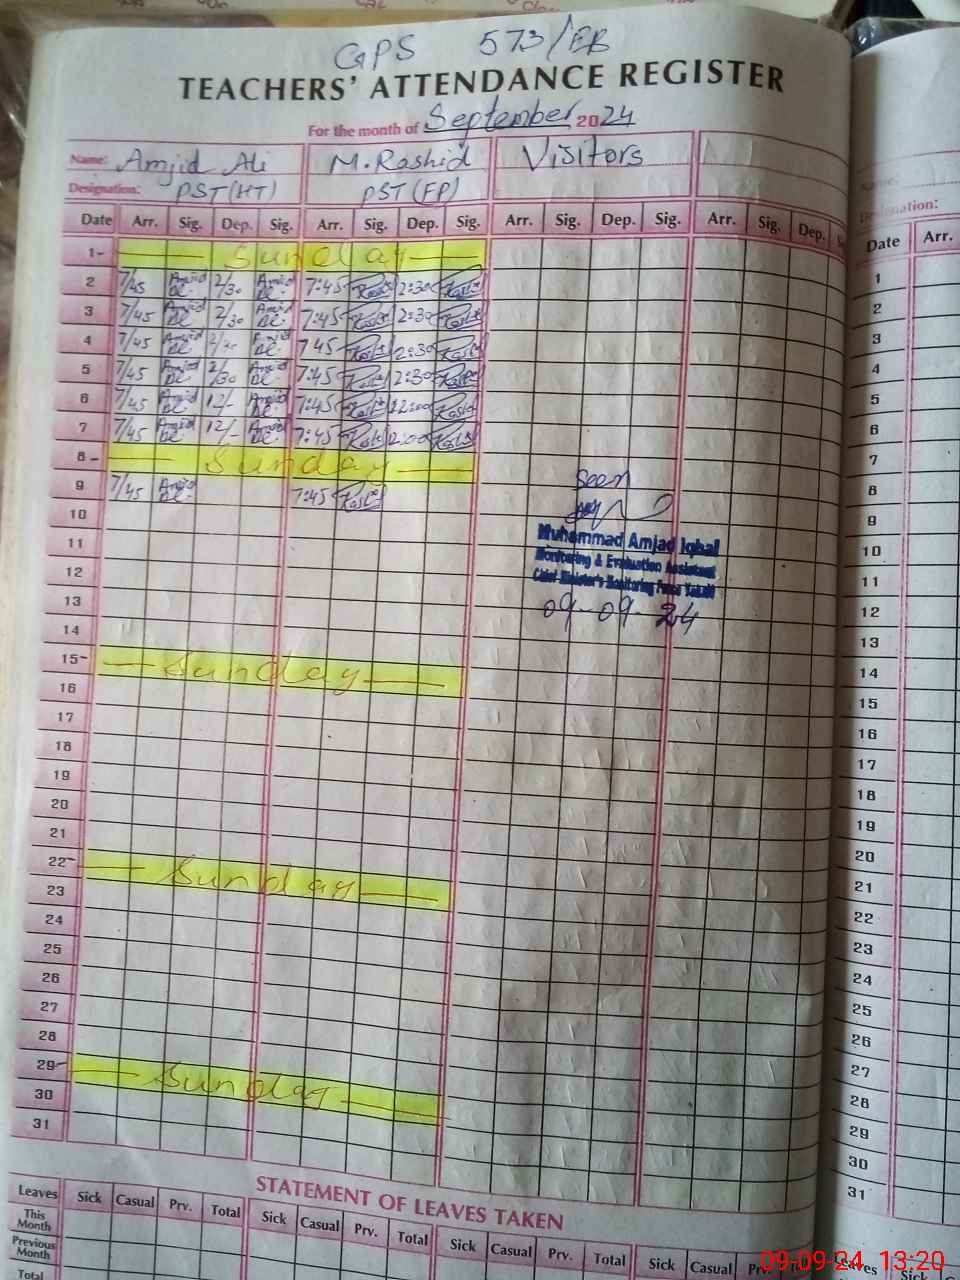 GPS 573/EB
TEACHERS' ATTENDANCE REGISTER
For the month of September 2024
Name: Amjid Ali M.Rashid Visitors
Designation: PST(HT) PST(EP)
Date Arr. Sig. Dep. Sig. Arr. Sig. Dep. Sig. Arr. Sig. Dep. Sig. Arr. Sig. Dep.
1- Sunday
2 7/45 Amjid 2/30 Amjid 7:45 Rashid 2:30 Rashid
3 7/45 Amjid 2/30 Amjid 7:45 Rashid 2:30 Rashid
4 7/45 Amjid 2/30 Amjid 7 45 Rashid 2:30 Rashid
5 7/45 Amjid 2/30 Amjid 7:45 Rashid 2:30 Rashid
6 7/45 Amjid 12/- Amjid 7:45 Rashid 12:00 Rashid
7 7/45 Amjid 12/- Amjid 7:45 Rashid 12:00 Rashid
8- Sunday
9 7/45 Amjid 7:45 Rashid
Seen
10
11
Muhammad Amjad Iqbal
Monitoring & Evaluation Assistant
12
Chief Minister's Monitoring Force
13
09-09-24
14
15- Sunday
16
17
18
19
20
21
22- Sunday
23
24
25
26
27
28
29- Sunday
30
31
STATEMENT OF LEAVES TAKEN
Leaves Sick Casual Prv. Total Sick Casual Prv. Total Sick Casual Prv. Total Sick Casual
This Month
Previous Month
Total
Name:
Designation:
Date Arr.
1
2
3
4
5
6
7
8
9
10
11
12
13
14
15
16
17
18
19
20
21
22
23
24
25
26
27
28
29
30
31
Leaves Sick
09-09-24 13:20